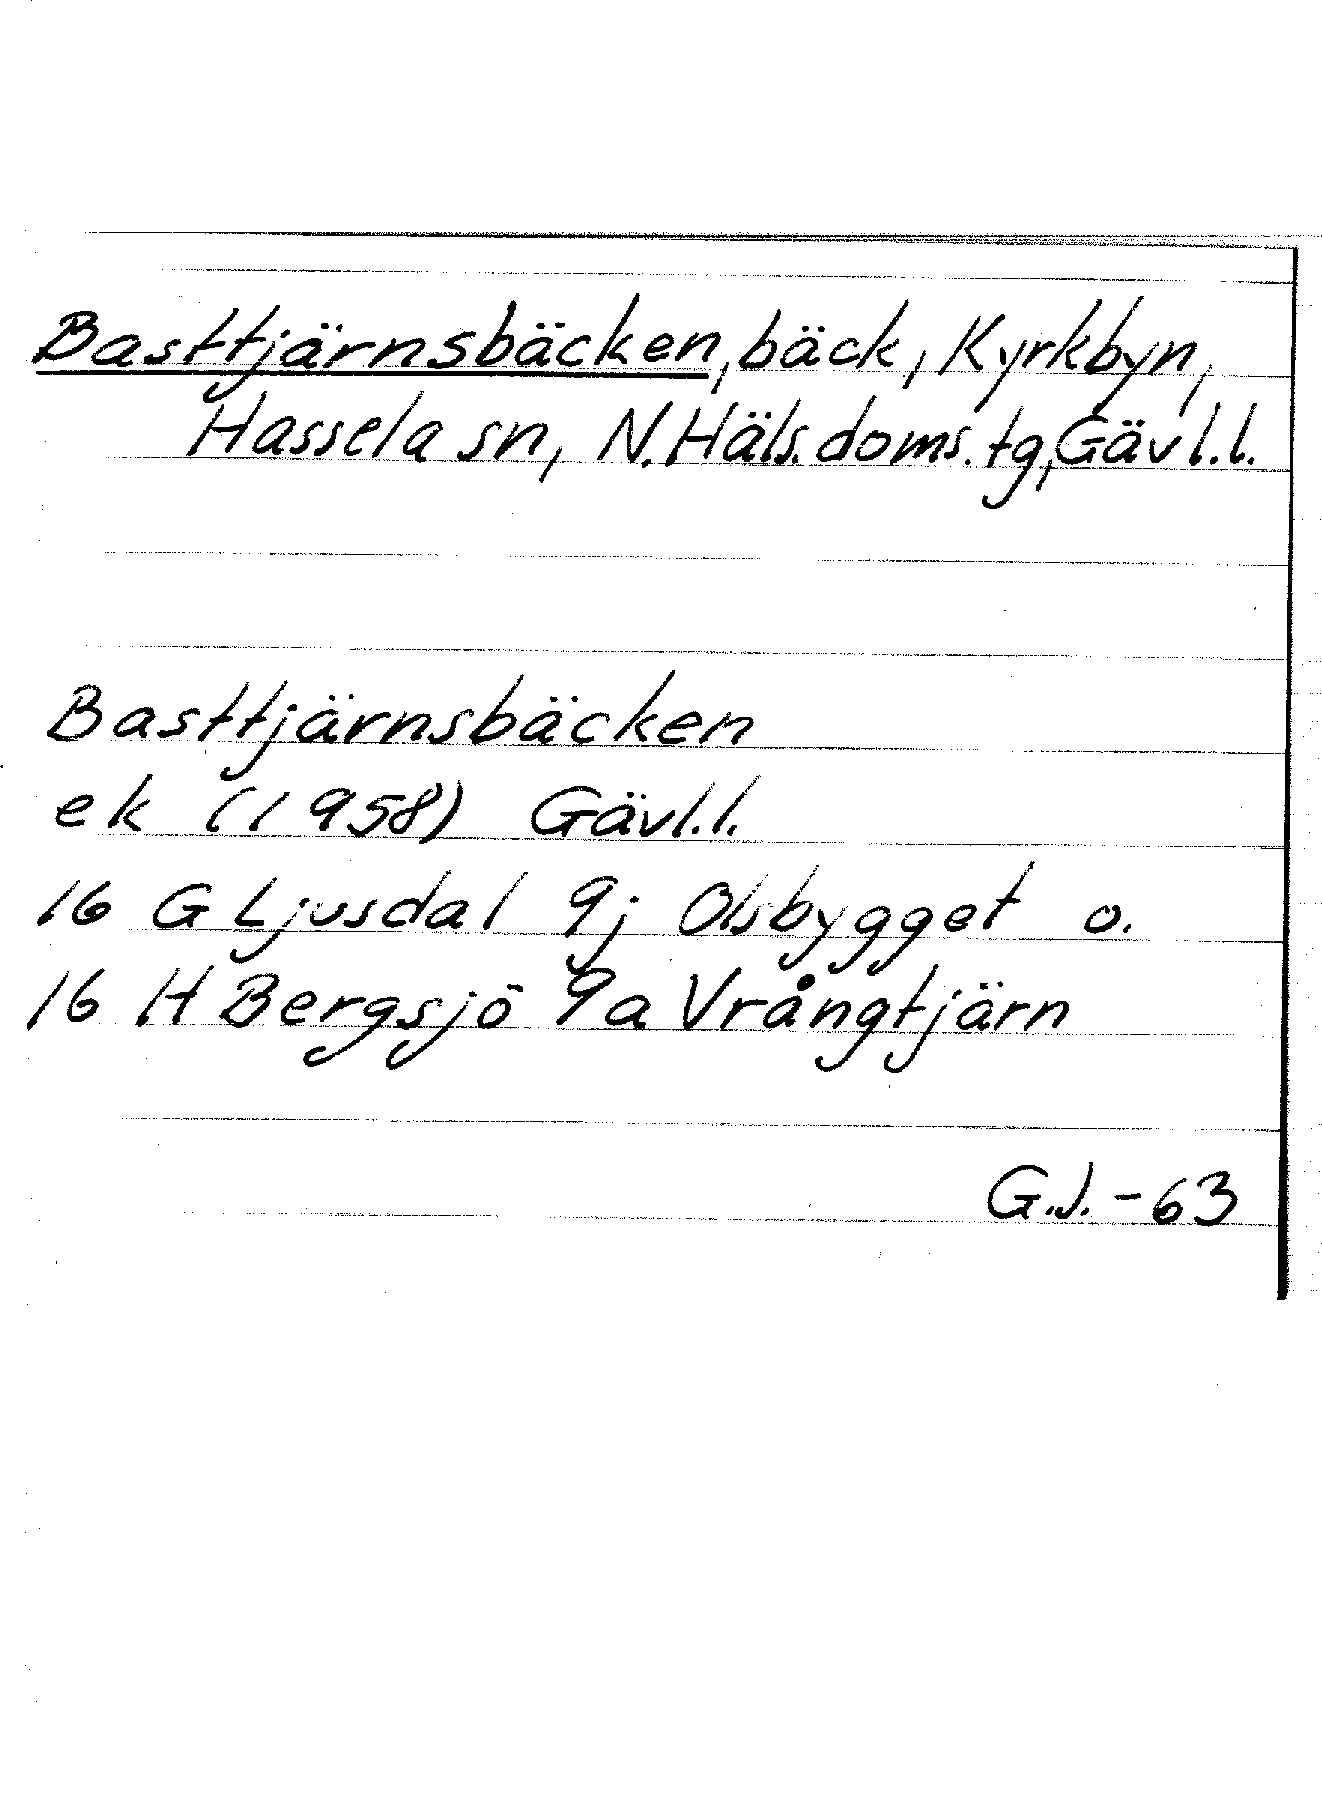 Basttjärnsbäcken, bäck, Kyrkbyn,
Hassela sn, N. Häls. doms. tg, Gävl. l.
Basttjärnsbäcken
ek (1958) Gävl. l.
16 G Ljusdal 9j Olsbygget o.
16 H Bergsjö 9a Vrångtjärn
G.J. - 63